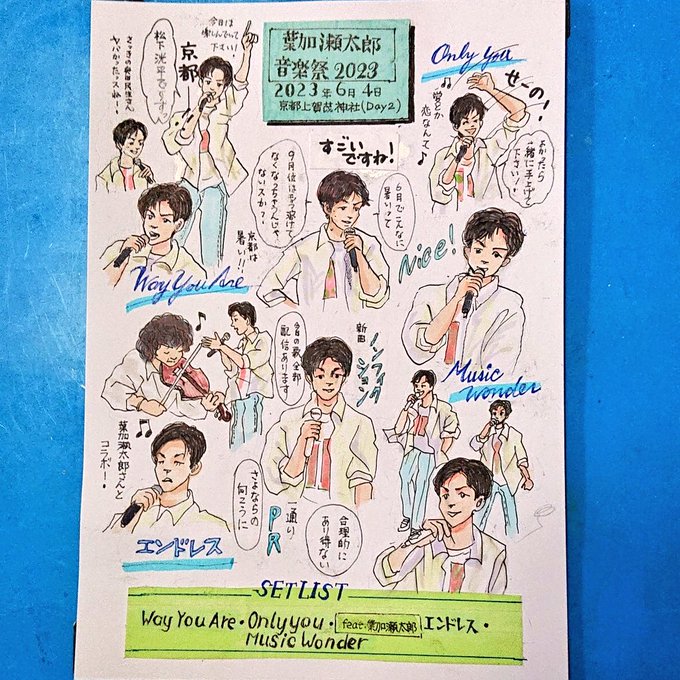 葉加瀬太郎
音楽祭 2023
2023年6月4日
京都上賀茂神社(Day2)
今日は
楽しんでいって
下さい!
京都
松下洸平です。
さっきの奥田民生さん
ヤバかったっスねー!
Only you
せーの!
愛とか
恋なんて
よかったら
一緒に手上げて
下さい!
すごい
ですね!
6月でこんなに
暑いって
9月位はもう溶けて
なくなっちゃうんじゃ
ないスか?
京都は
暑い!!
Way You Are
Nice!
今日の歌全部
配信あります
新曲
ノンフィク
ション
Music
Wonder
葉加瀬太郎さんと
コラボ!
エンドレス
さよならの
向こうに
一通り
PR
合理的に
あり得ない
SETLIST
Way You Are・Only you・feat.葉加瀬太郎 エンドレス・
Music Wonder